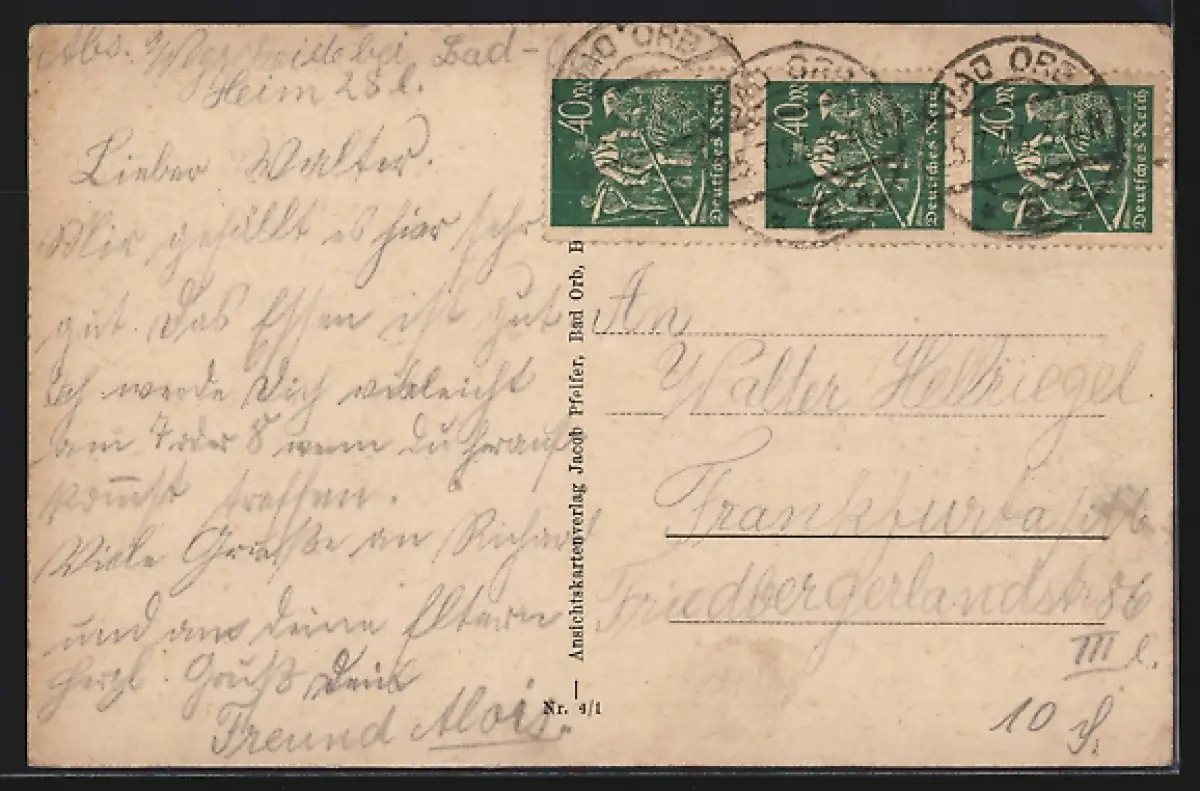 Abs. Wegscheide bei Bad-
Heim 28 l.
Lieber Walter.
Mir gefällt es hier sehr
gut. Das Essen ist gut
Ich werde Dich vieleicht
am 7 oder 8 wenn du herauf
kommst treffen.
Viele Grüße an Richard
und an deine Eltern
herzl. Gruß Dein
Freund Alois.
BAD ORB
BAD ORB
BAD ORB
40 M
Deutsches Reich
40 M
Deutsches Reich
40 M
Deutsches Reich
— Ansichtskartenverlag Jacob Pfeifer, Bad Orb, B
Nr. 4/1
An
Walter Hellriegel
Frankfurt
Friedbergerlandstr 86
III l.
10